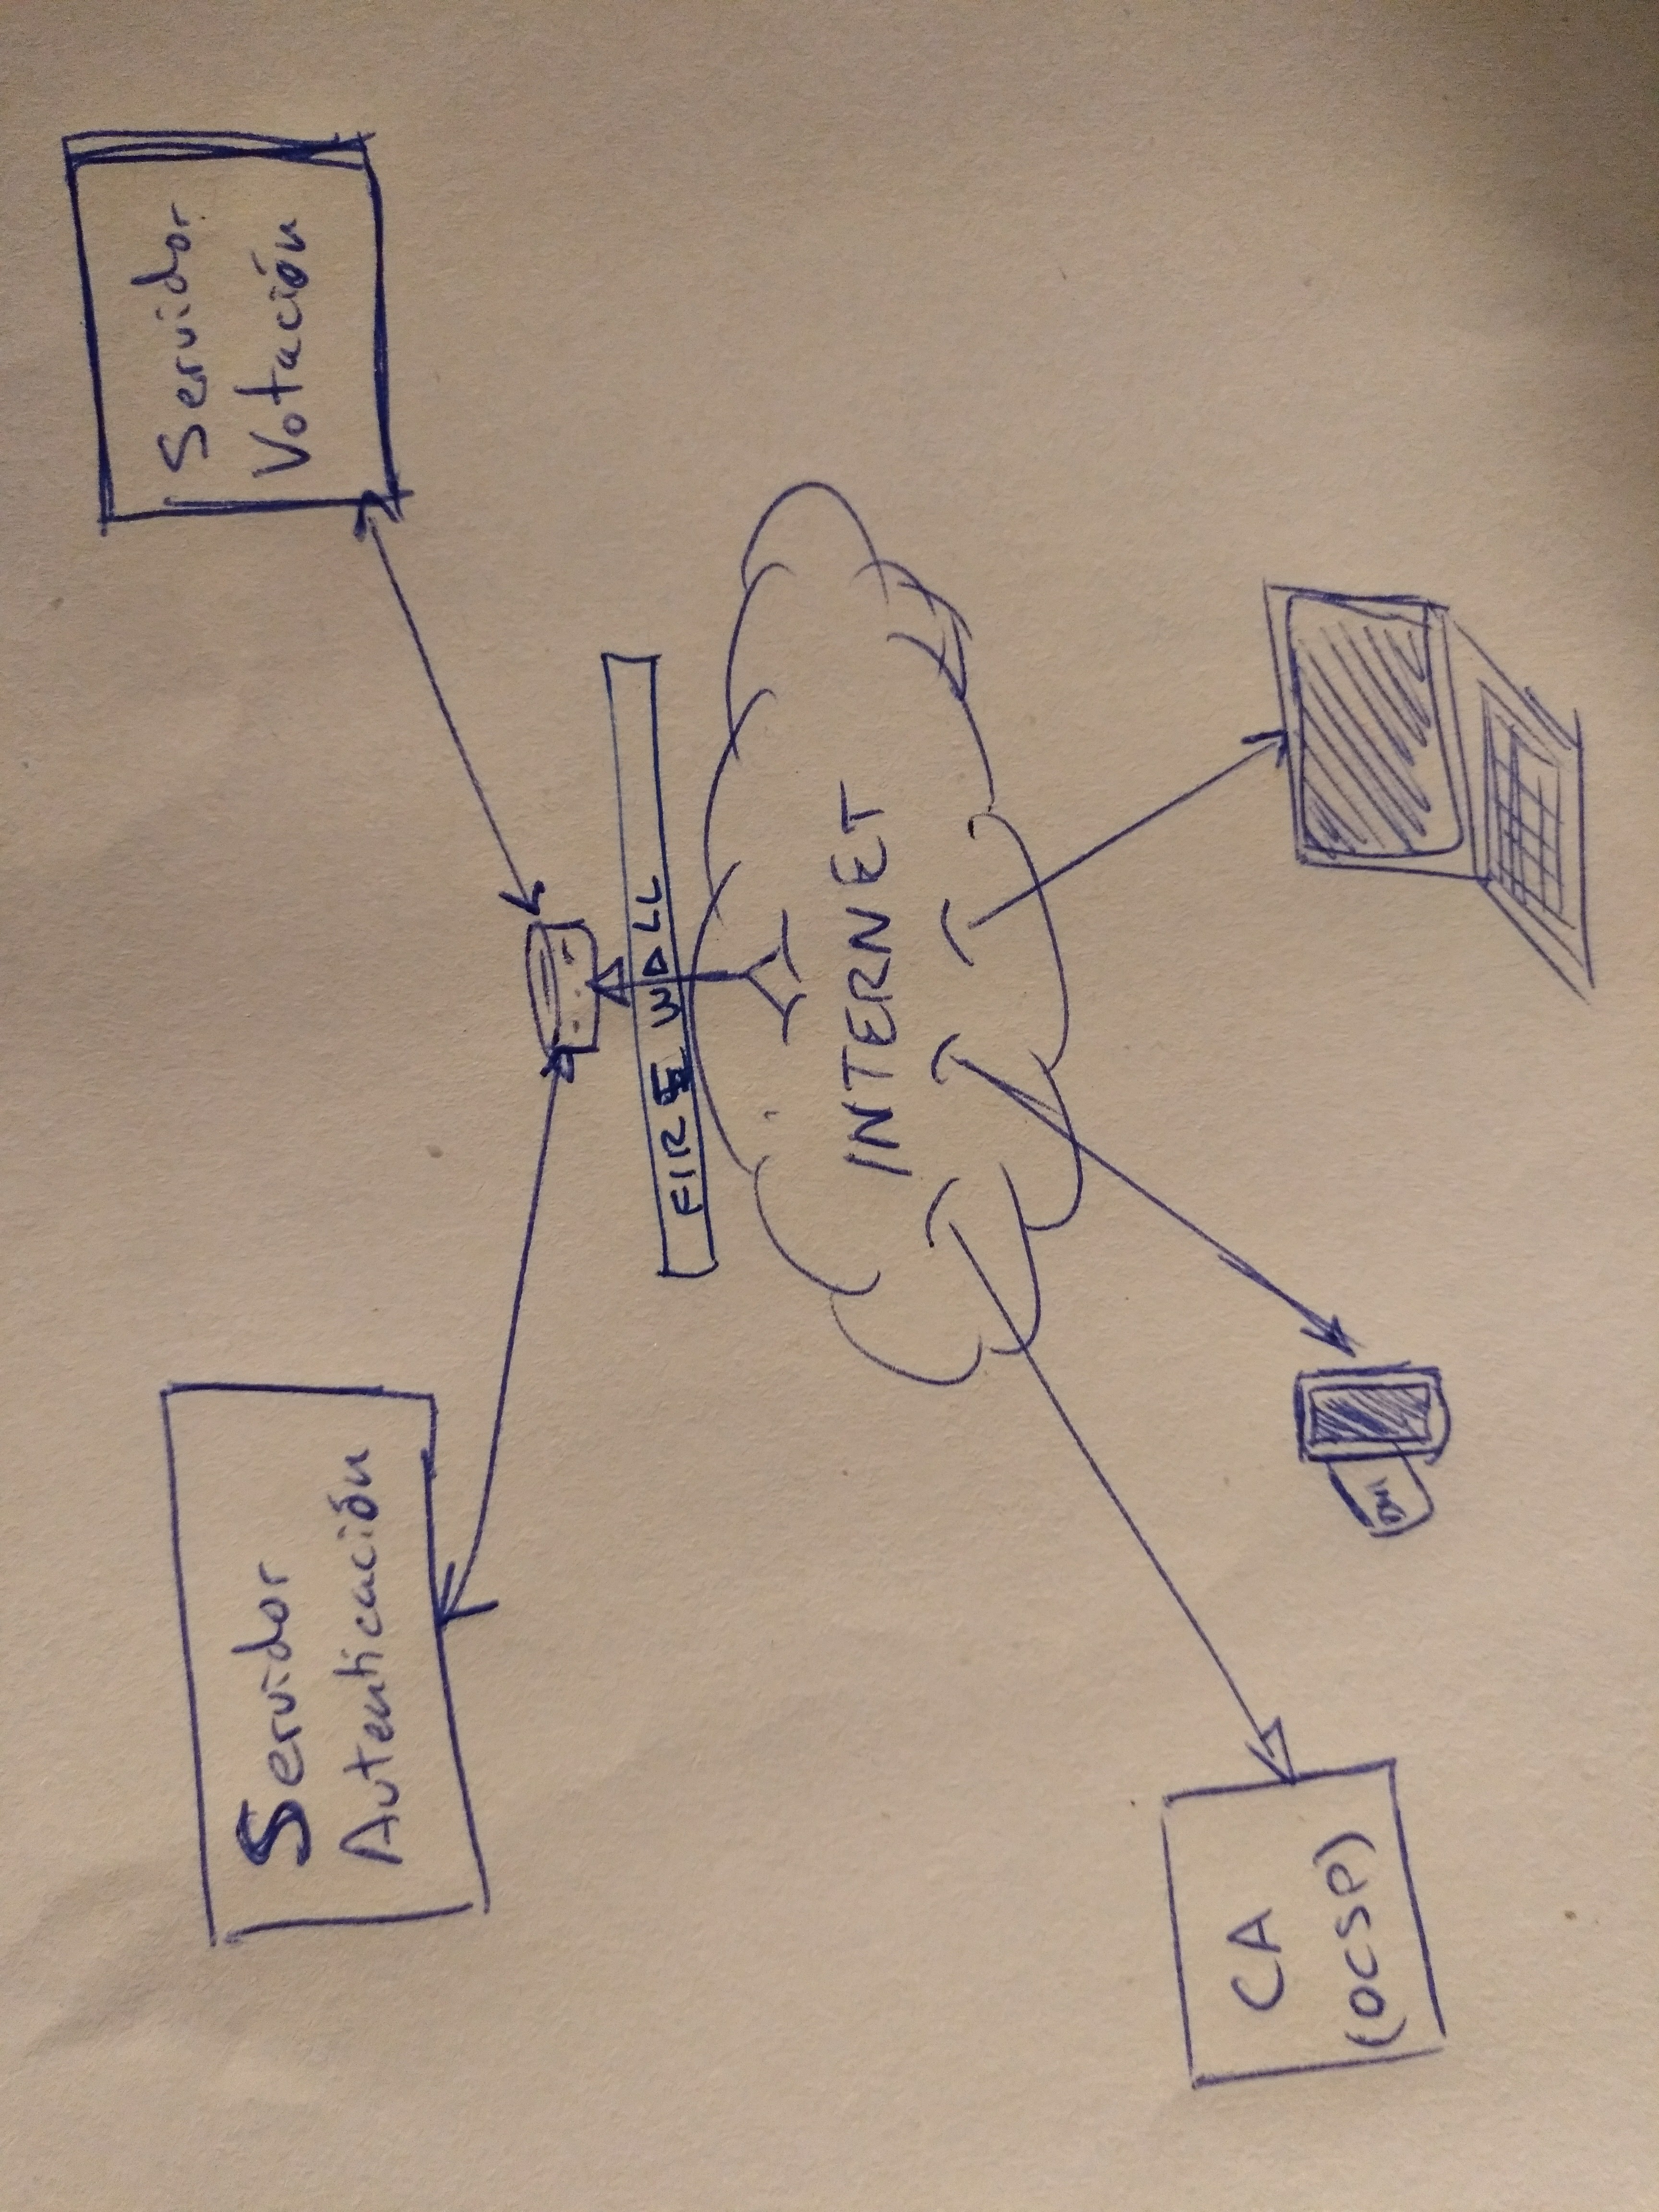 Servidor
Autenticación
Servidor
Votación
FIREWALL
INTERNET
CA
(OCSP)
DNI